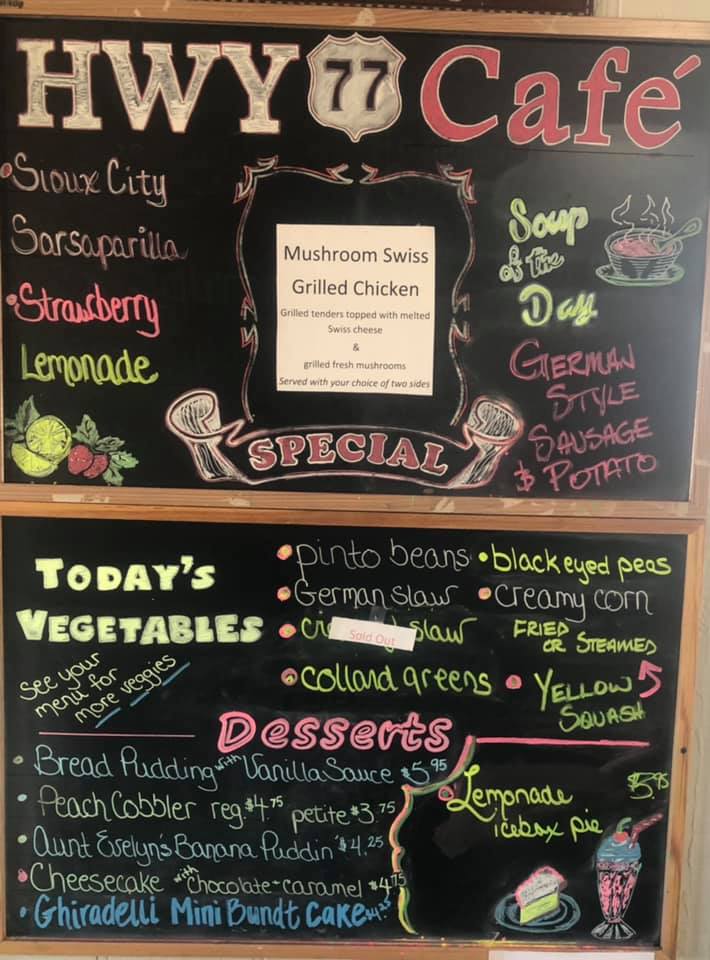 HWY 77 Café
Sioux City
Sarsaparilla
Strawberry
Lemonade
Mushroom Swiss
Grilled Chicken
Grilled tenders topped with melted
Swiss cheese
&
grilled fresh mushrooms
Served with your choice of two sides
SPECIAL
Soup
of the
Day
GERMAN
STYLE
SAUSAGE
& POTATO
TODAY'S
VEGETABLES
See your
menu for
more veggies
pinto beans
German slaw
slaw
Sold Out
collard greens
black eyed peas
creamy corn
FRIED
OR STEAMED
YELLOW
SQUASH
Desserts
Bread Pudding with Vanilla Sauce $5.95
Peach Cobbler reg. $4.75 petite $3.75
Aunt Evelyn's Banana Puddin' $4.25
Cheesecake with Chocolate-caramel $4.75
Ghiradelli Mini Bundt Cake $4.25
Lemonade $3.95
icebox pie